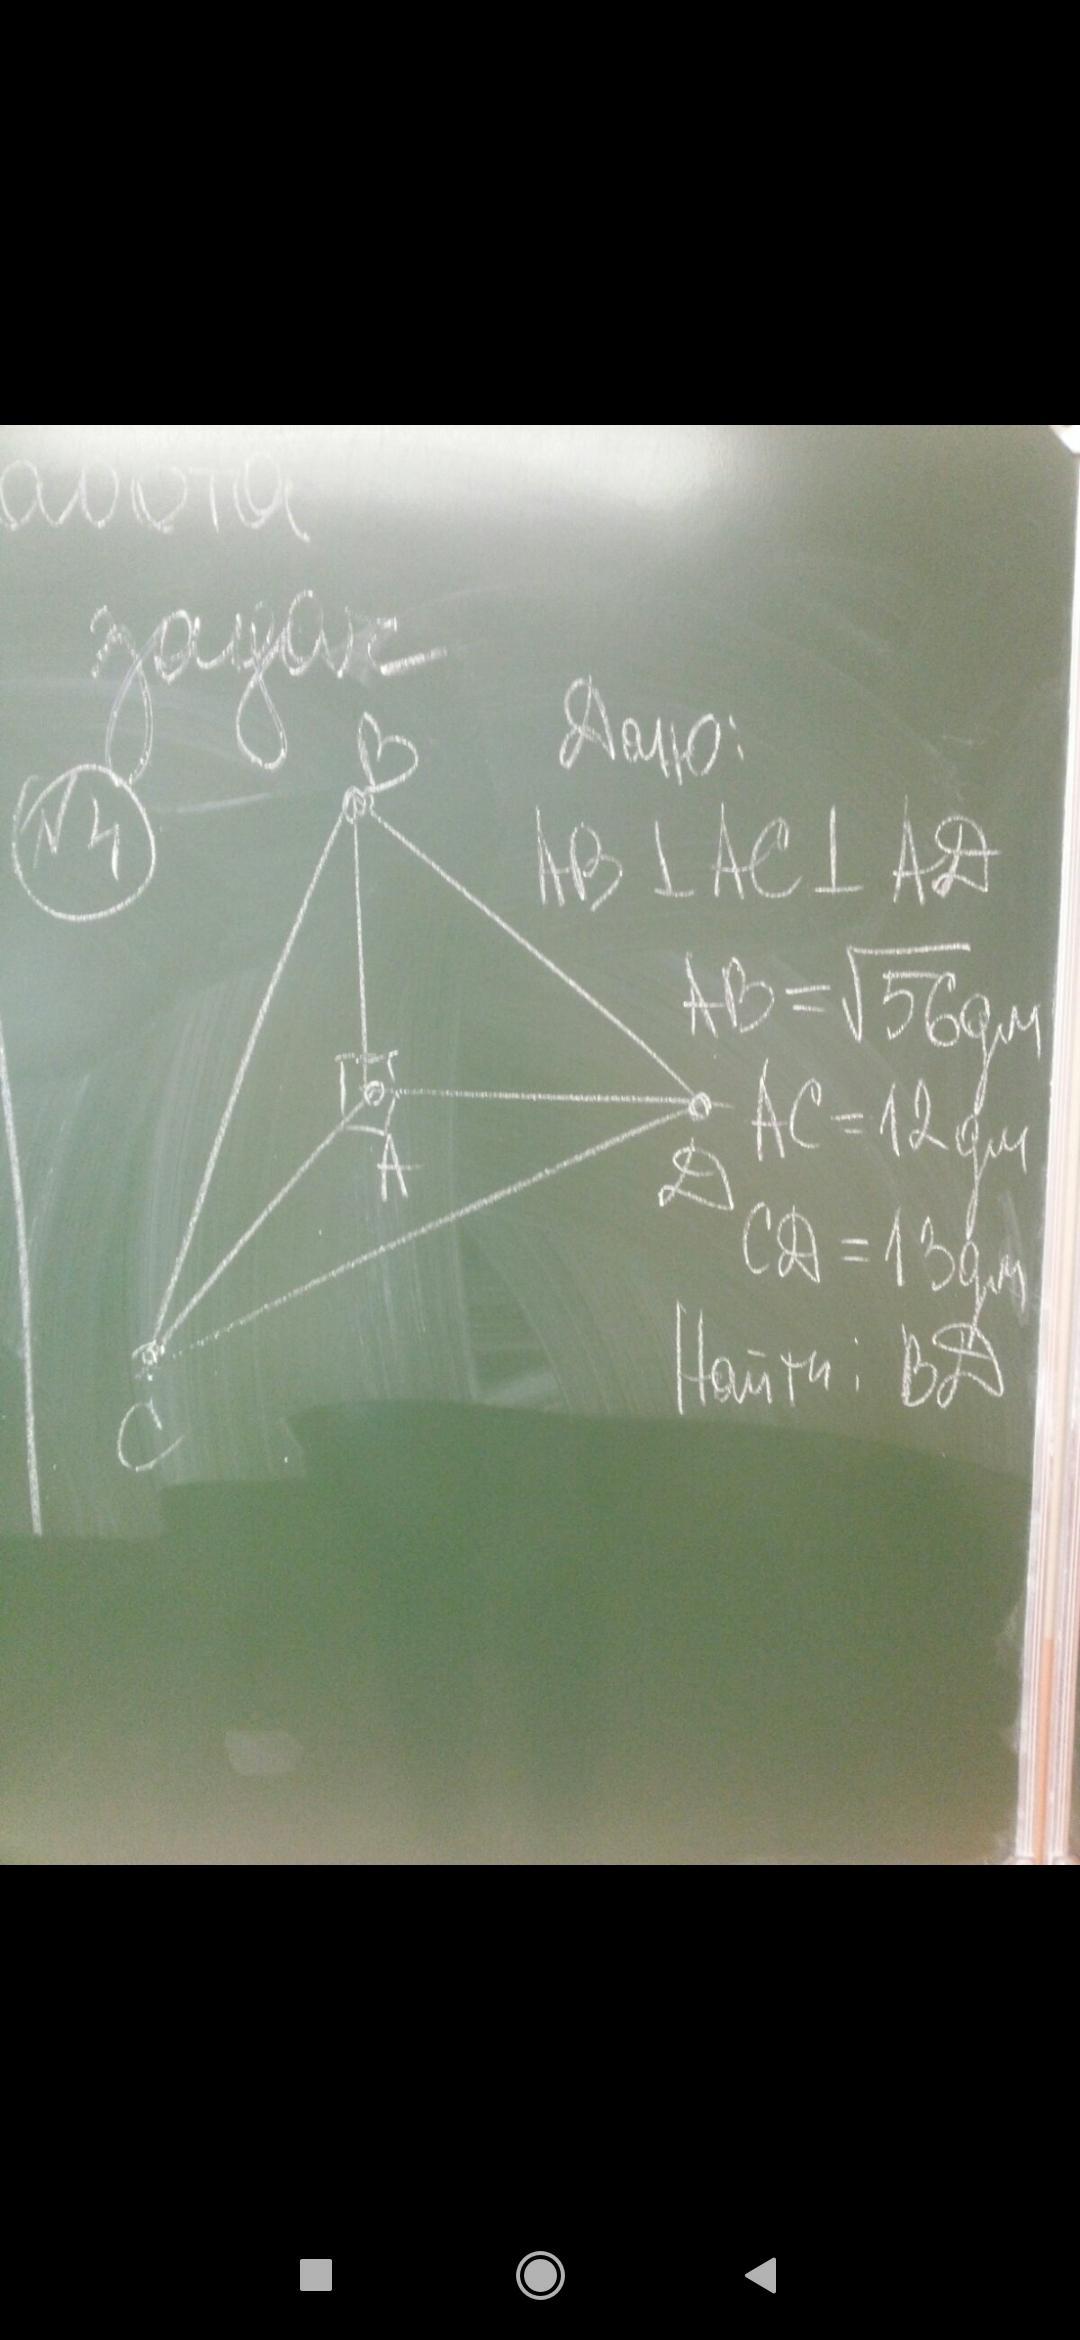 задач
№4
B
A
Д
C
Дано:
AB ⊥ AC ⊥ AД
AB = √56 дм
AC = 12 дм
CД = 13 дм
Найти: BД